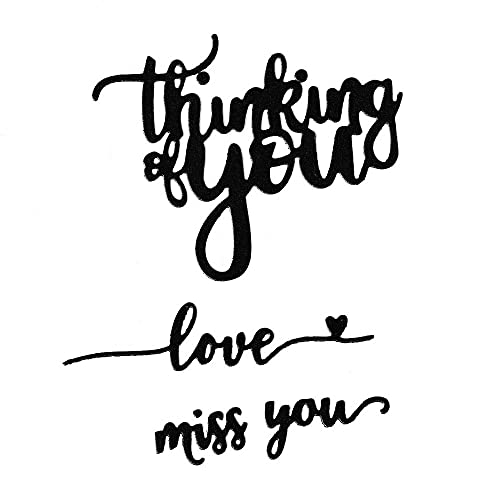 thinking
of you
love
miss you